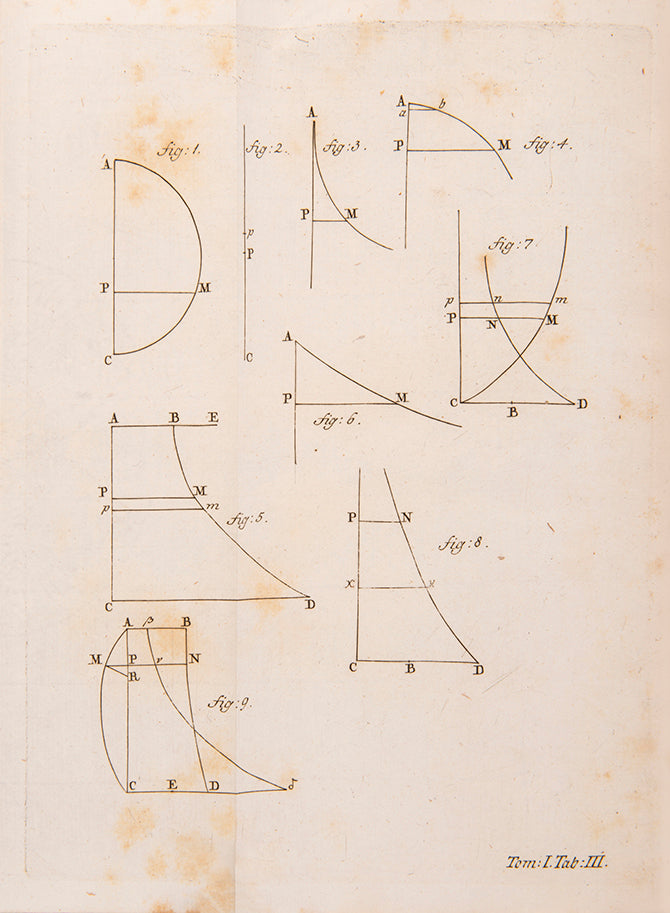 A
fig: 1.
P M
C
fig: 2.
p
P
C
A
fig: 3.
P M
A
a b
P M
fig: 4.
fig: 7
p n m
P N M
C B D
A
P M
fig: 6.
A B E
P M
p m
fig: 5.
C D
P N
fig: 8.
x
C B D
A β B
M P ν N
R
fig: 9.
C E D δ
Tom: I. Tab: III.